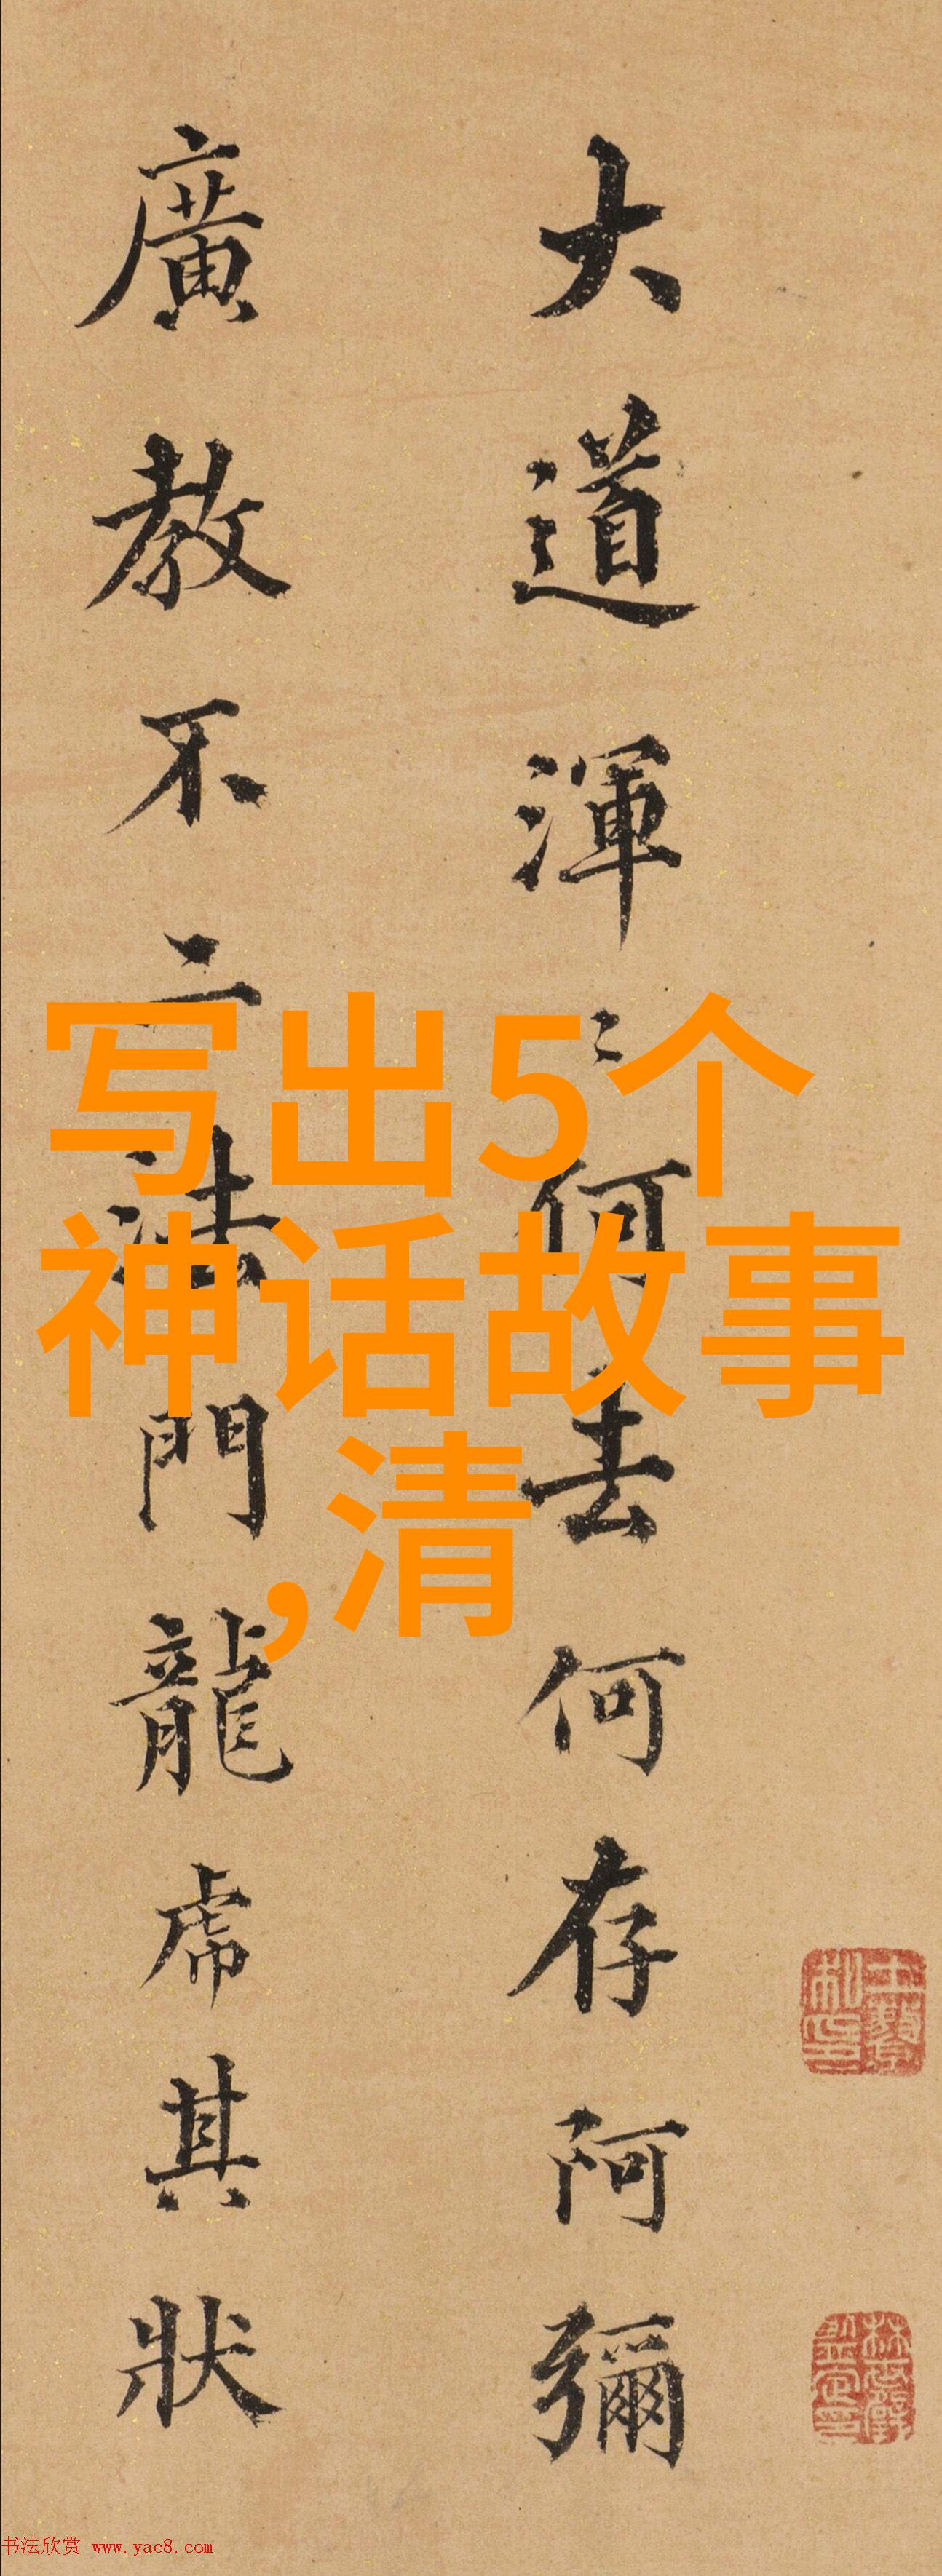 大道渾〻何去何存阿彌
廣教不二法門龍虎其狀
写出5个
神话故事
,清
书法欣赏 www.yac8.com